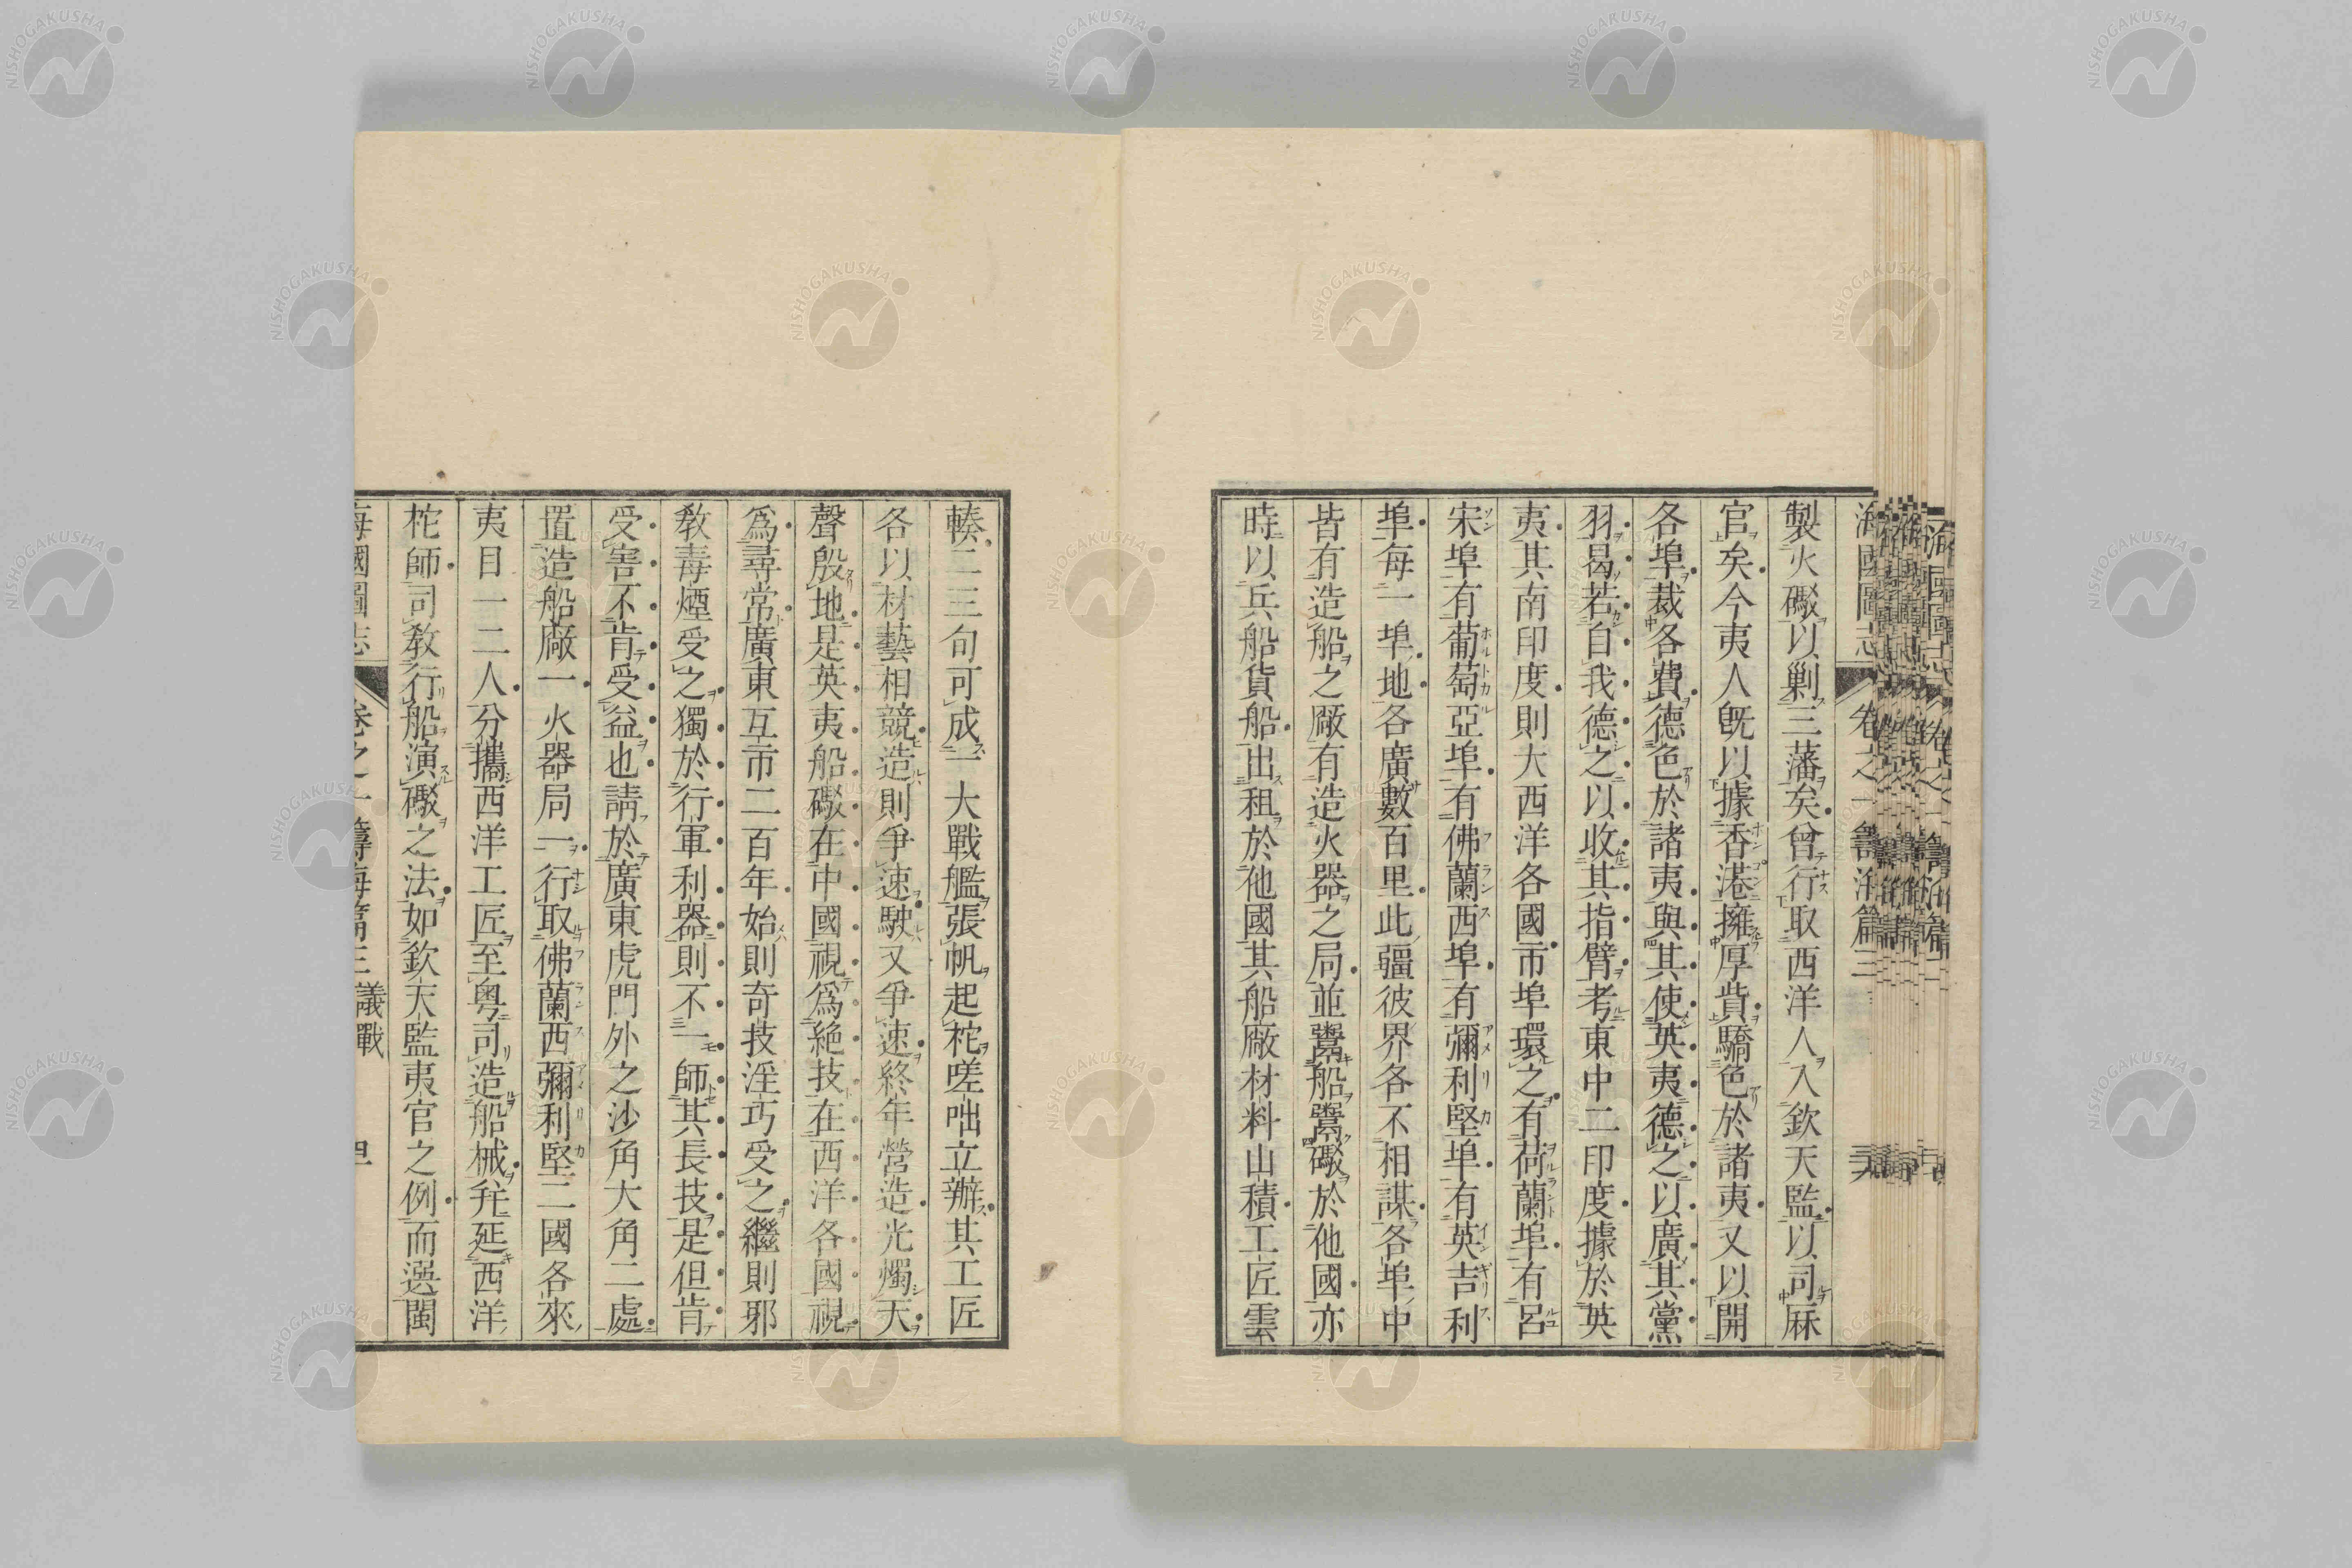 海國圖志 卷之一 籌海篇三
製火礮以剿三藩矣曾行取西洋人入欽天監以司厤
官矣今夷人旣以據香港擁厚貲驕色於諸夷又以開
各埠裁各費德色於諸夷與其使英夷德之以廣其黨
羽曷若自我德之以收其指臂考東中二印度據於英
夷其南印度則大西洋各國市埠環之有荷蘭埠有呂
宋埠有葡萄亞埠有佛蘭西埠有彌利堅埠有英吉利
埠每一埠地各廣數百里此疆彼界各不相謀各埠中
皆有造船之廠有造火器之局並鬻船鬻礮於他國亦
時以兵船貨船出租於他國其船廠材料山積工匠雲
輳二三旬可成一大戰艦張帆起柁嗟咄立辦其工匠
各以材藝相競造則爭速駛又爭速終年營造光燭天
聲殷地是英夷船礮在中國視爲絶技在西洋各國視
爲尋常廣東互市二百年始則奇技淫巧受之繼則邪
敎毒煙受之獨於行軍利器則不一師其長技是但肯
受害不肯受益也請於廣東虎門外之沙角大角二處
置造船廠一火器局一行取佛蘭西彌利堅二國各來
夷目一二人分攜西洋工匠至粤司造船械幷延西洋
柁師司敎行船演礮之法如欽天監夷官之例而選閩
海國圖志 卷之一 籌海篇三 議戰
NISHOGAKUSHA